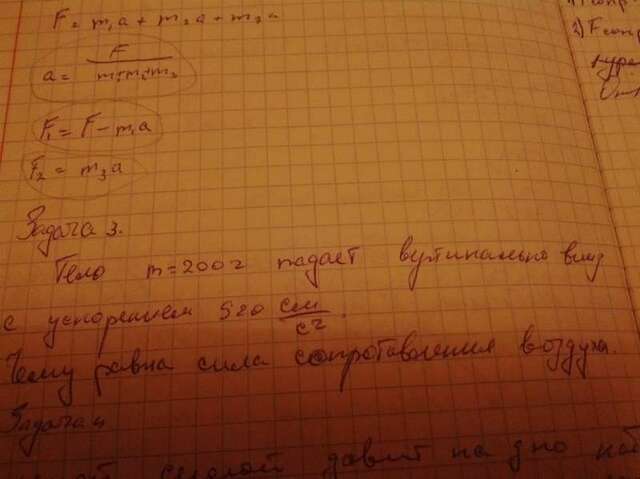 F = m₁a + m₂a + m₃a
a = F / m₁+m₂+m₃
F₁ = F - m₁a
F₂ = m₃a
Задача 3.
Тело m = 200 г падает вертикально вниз
с ускорением 920 см/с².
Чему равна сила сопротивления воздуха.
Задача 4
давит на дно
2) F сопр